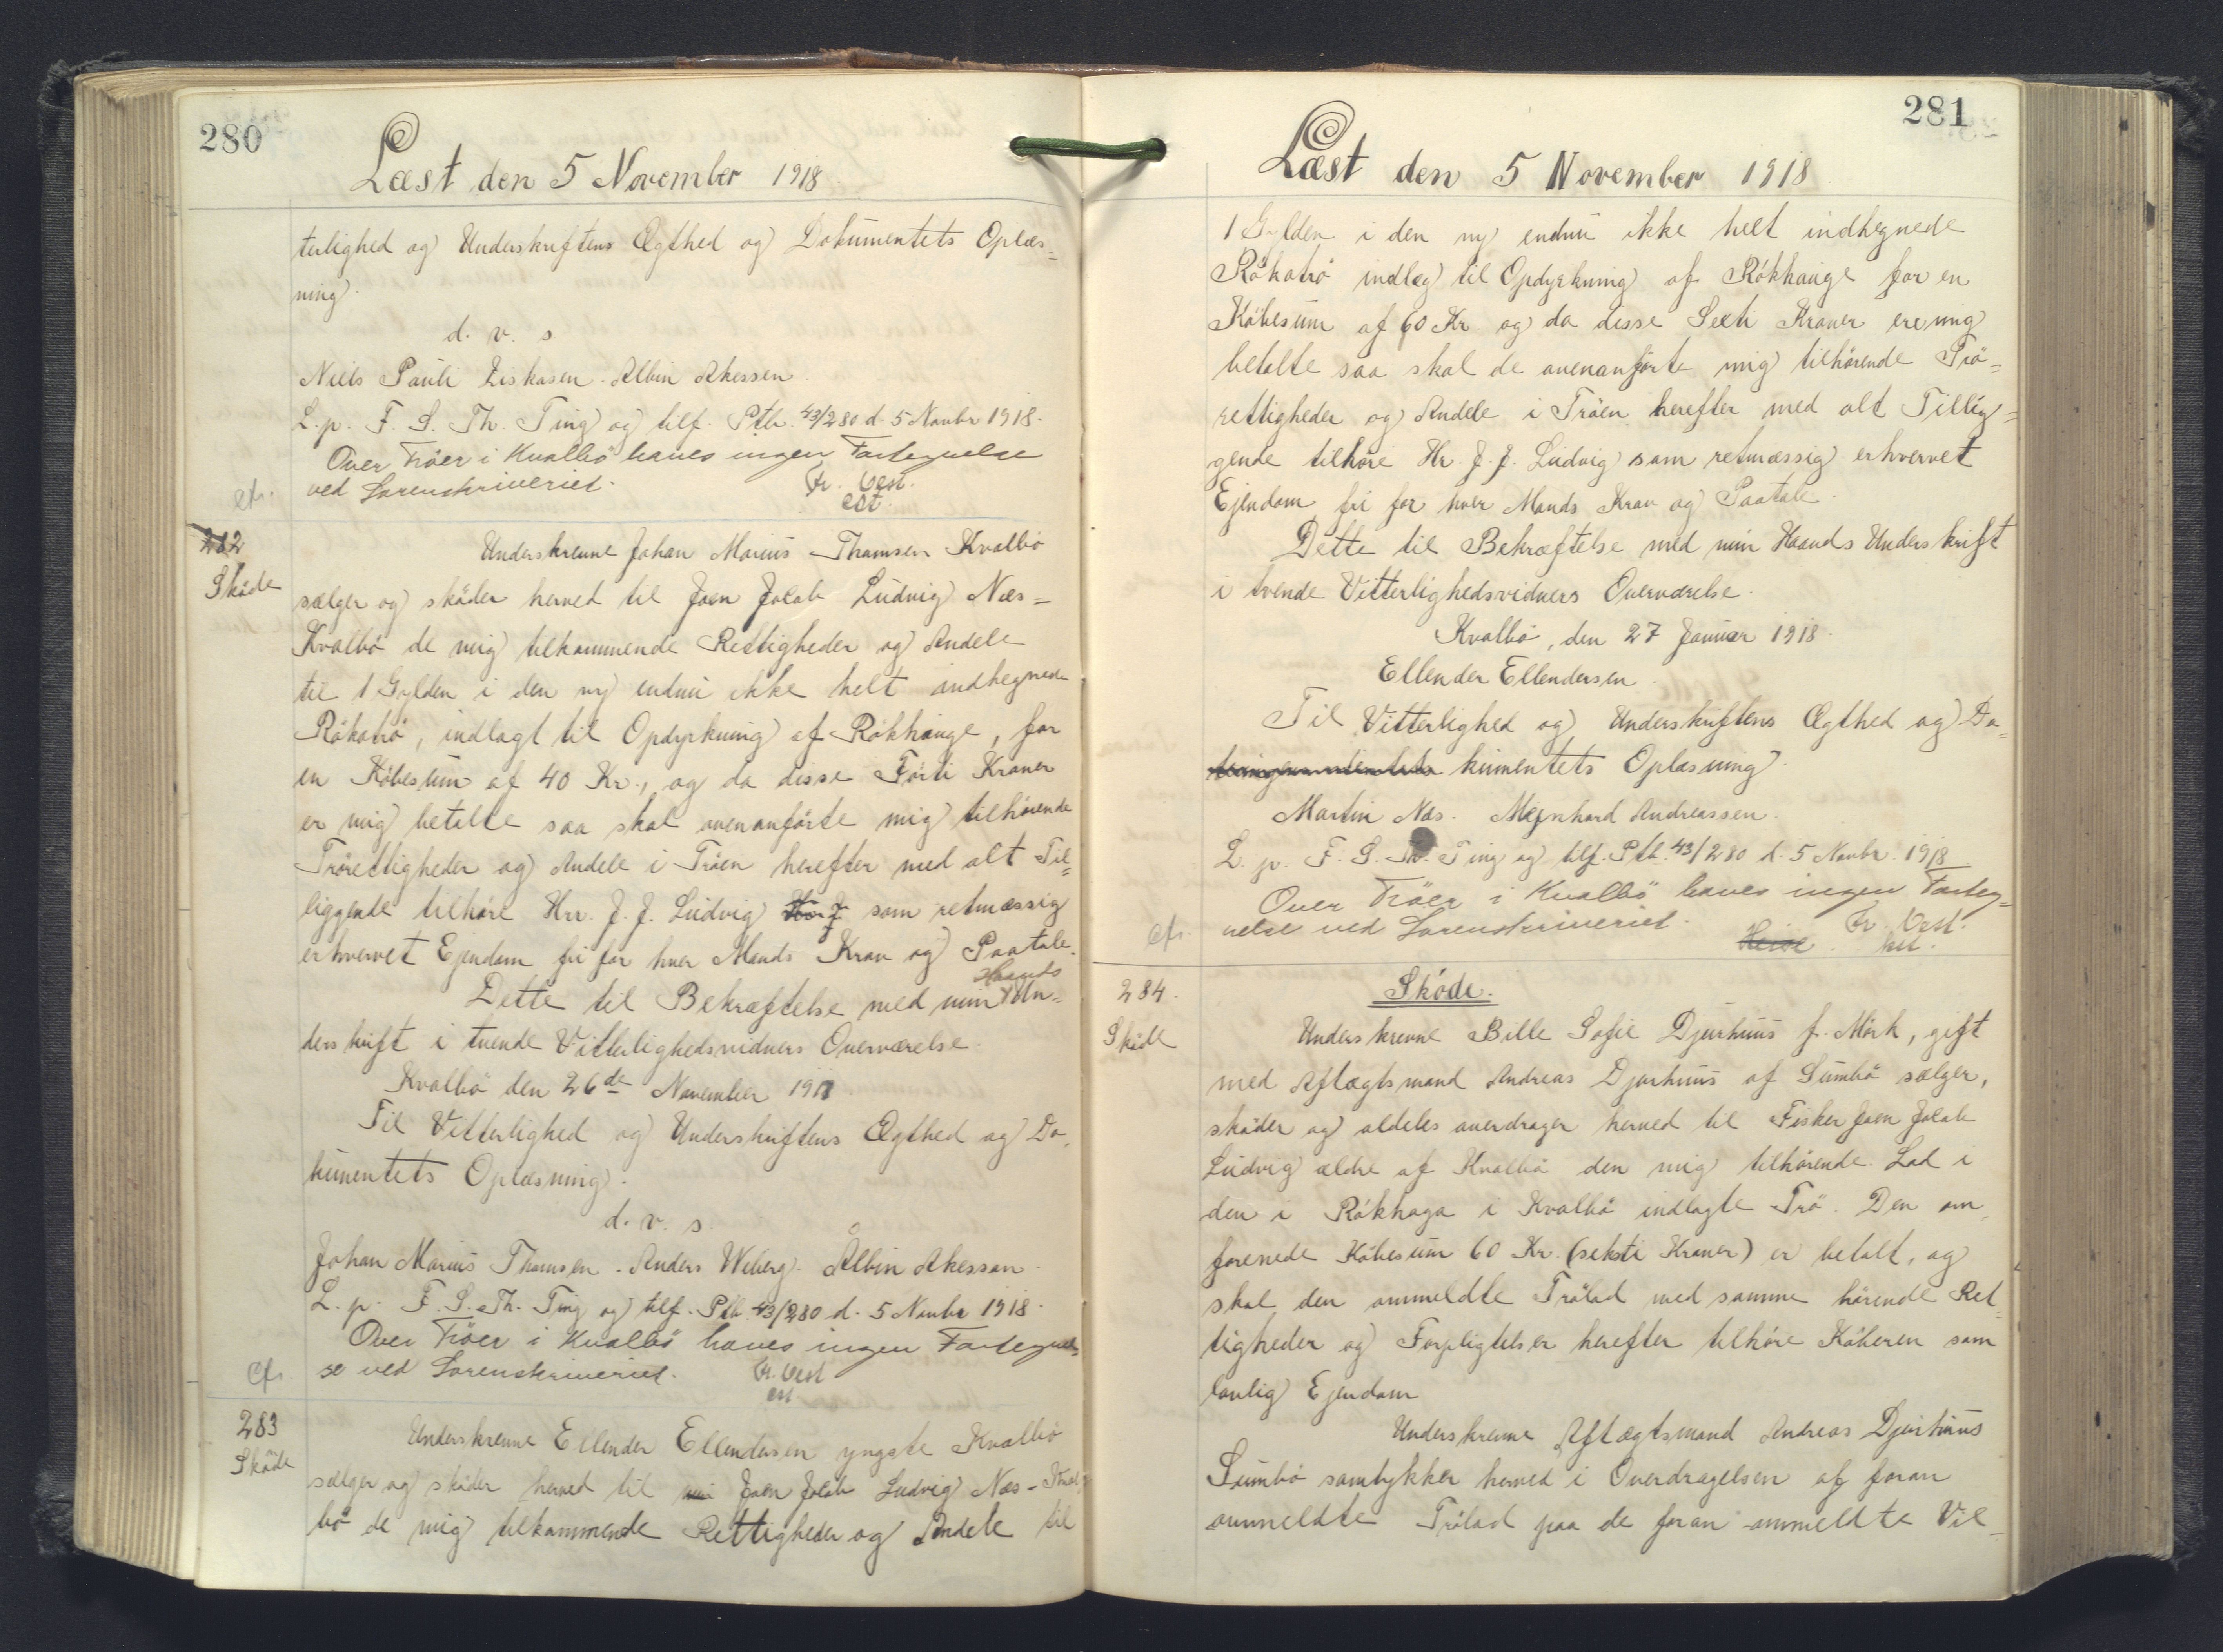 280
Læst den 5 November 1918
terlighed og Underskriftens Ægthed og Dokumentets Oplæs=
ning.
d. v. s.
Niels Pauli Ziskasen. Albin Akessen
L. p. F. S. Th. Ting og tilf. Ptb. 43/280 d. 5 Novbr 1918.
Over Tröer i Kvalbö haves ingen Fortegnelse
ved Sorenskriveriet.
cfr.
282
Sköde
Underskrevne Johan Marius Thomsen Kvalbö
sælger og sköder herved til Joen Jacob Ludvig Næs=
Kvalbö de mig tilkommende Rettigheder og Andele
til 1 Gylden i den ny endnu ikke helt indhegnede
Rökatrö, indlagt til Opdyrkning af Rökhauge, for
en Köbesum af 40 Kr., og da disse Förti Kroner
er mig betalte saa skal ovenanförte mig tilhörende
Trörettigheder og Andele i Tröen herefter med alt Til=
liggende tilhöre Hr. J. J. Ludvig som retmæssig
erhvervet Ejendom fri for hver Mands Krav og Paatale.
Dette til Bekræftelse med min Haands Un=
derskrift i tvende Vitterlighedsvidners Overværelse.
Kvalbö den 26de November 1917
Til Vitterlighed og Underskriftens Ægthed og Do=
kumentets Oplæsning.
d. v. s.
Johan Marius Thomsen. Anders Weberg. Albin Akesson.
L. p. F. S. Th. Ting og tilf. Ptb. 43/280 d. 5 Novbr 1918.
Over Tröer i Kvalbö haves ingen Fortegnel=
se ved Sorenskriveriet.
cfr.
283
Sköde
Underskrevne Ellender Ellendersen yngste Kvalbö
sælger og sköder herved til Joen Jacob Ludvig Næs - Kval=
bö de mig tilkommende Rettigheder og Andele til
281
Læst den 5 November 1918
1 Gylden i den ny endnu ikke helt indhegnede
Rökatrö indlæg til Opdyrkning af Rökhauge for en
Köbesum af 60 Kr. og da disse Sexti Kroner ere mig
betalte saa skal de ovenanförte mig tilhörende Trö=
rettigheder og Andele i Tröen herefter med alt Tillig=
gende tilhöre Hr. J. J. Ludvig som retmæssig erhvervet
Ejendom fri for hver Mands Krav og Paatale.
Dette til Bekræftelse med min Haands Underskrift
i tvende Vitterlighedsvidners Overværelse.
Kvalbö, den 27 Januar 1918.
Ellender Ellendersen.
Til Vitterlighed og Underskriftens Ægthed og Do=
kumentets Oplæsning
Martin Næs. Mejnhard Andreassen.
L. p. F. S. Th. Ting og tilf. Ptb. 43/280 d. 5 Novbr. 1918
Over Tröer i Kvalbö haves ingen Forteg=
nelse ved Sorenskriveriet.
cfr.
284.
Sköde
Sköde.
Underskrevne Bille Sofie Djurhuus f. Mörk, gift
med Aftægtsmand Andreas Djurhuus af Sumbö sælger,
sköder og aldeles overdrager herved til Fisker Joen Jacob
Ludvig ældre af Kvalbö den mig tilhörende Lod i
den i Rökhaga i Kvalbö indlagte Trö. Den om=
forenede Köbesum 60 Kr. (seksti Kroner) er betalt, og
skal den ommeldte Trölod med samme hörende Ret=
tigheder og Forpligtelser herefter tilhöre Köberen som
lovlig Ejendom
Underskrevne Aftægtsmand Andreas Djurhuus
Sumbö samtykker herved i Overdragelsen af foran
ommeldte Trölod paa de foran ommeldte Vil=